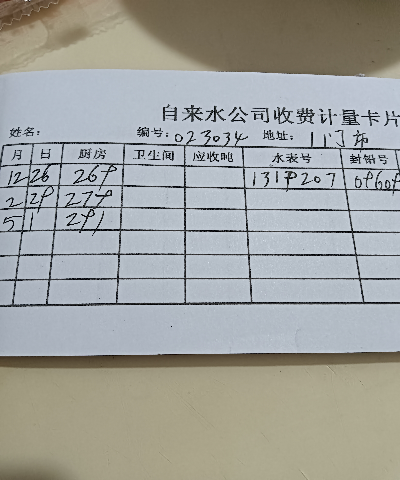 自来水公司收费计量卡片
姓名： 编号：023034 地址：11门市
月 日 厨房 卫生间 应收吨 水表号 封铅号
12 26 269 1319207 09609
2 29 279
5 1 291